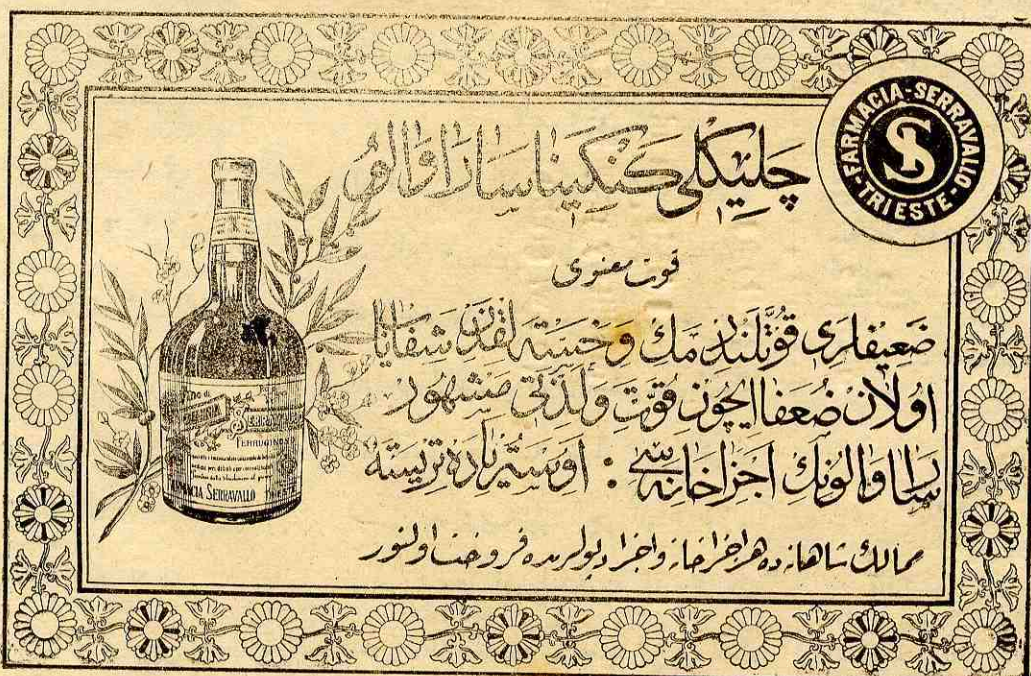 FARMACIA-SERRAVALLO
TRIESTE
S
چلیکلی کنکینا سارا والو
قوت معنوی
ضعیفلری قوتلندیرمك و خسته لقدن شفایاب
اولان ضعفا ایچون قوت و لذتی مشهور
سارا والونك اجزاخانه سی : اوستریاده تریسته
ممالك شاهانه ده هر اجزاخانه و اجزا دپولرنده فروخت اولنور
Vino di
SERRAVALLO
FERRUGINOSO
FARMACIA SERRAVALLO TRIESTE